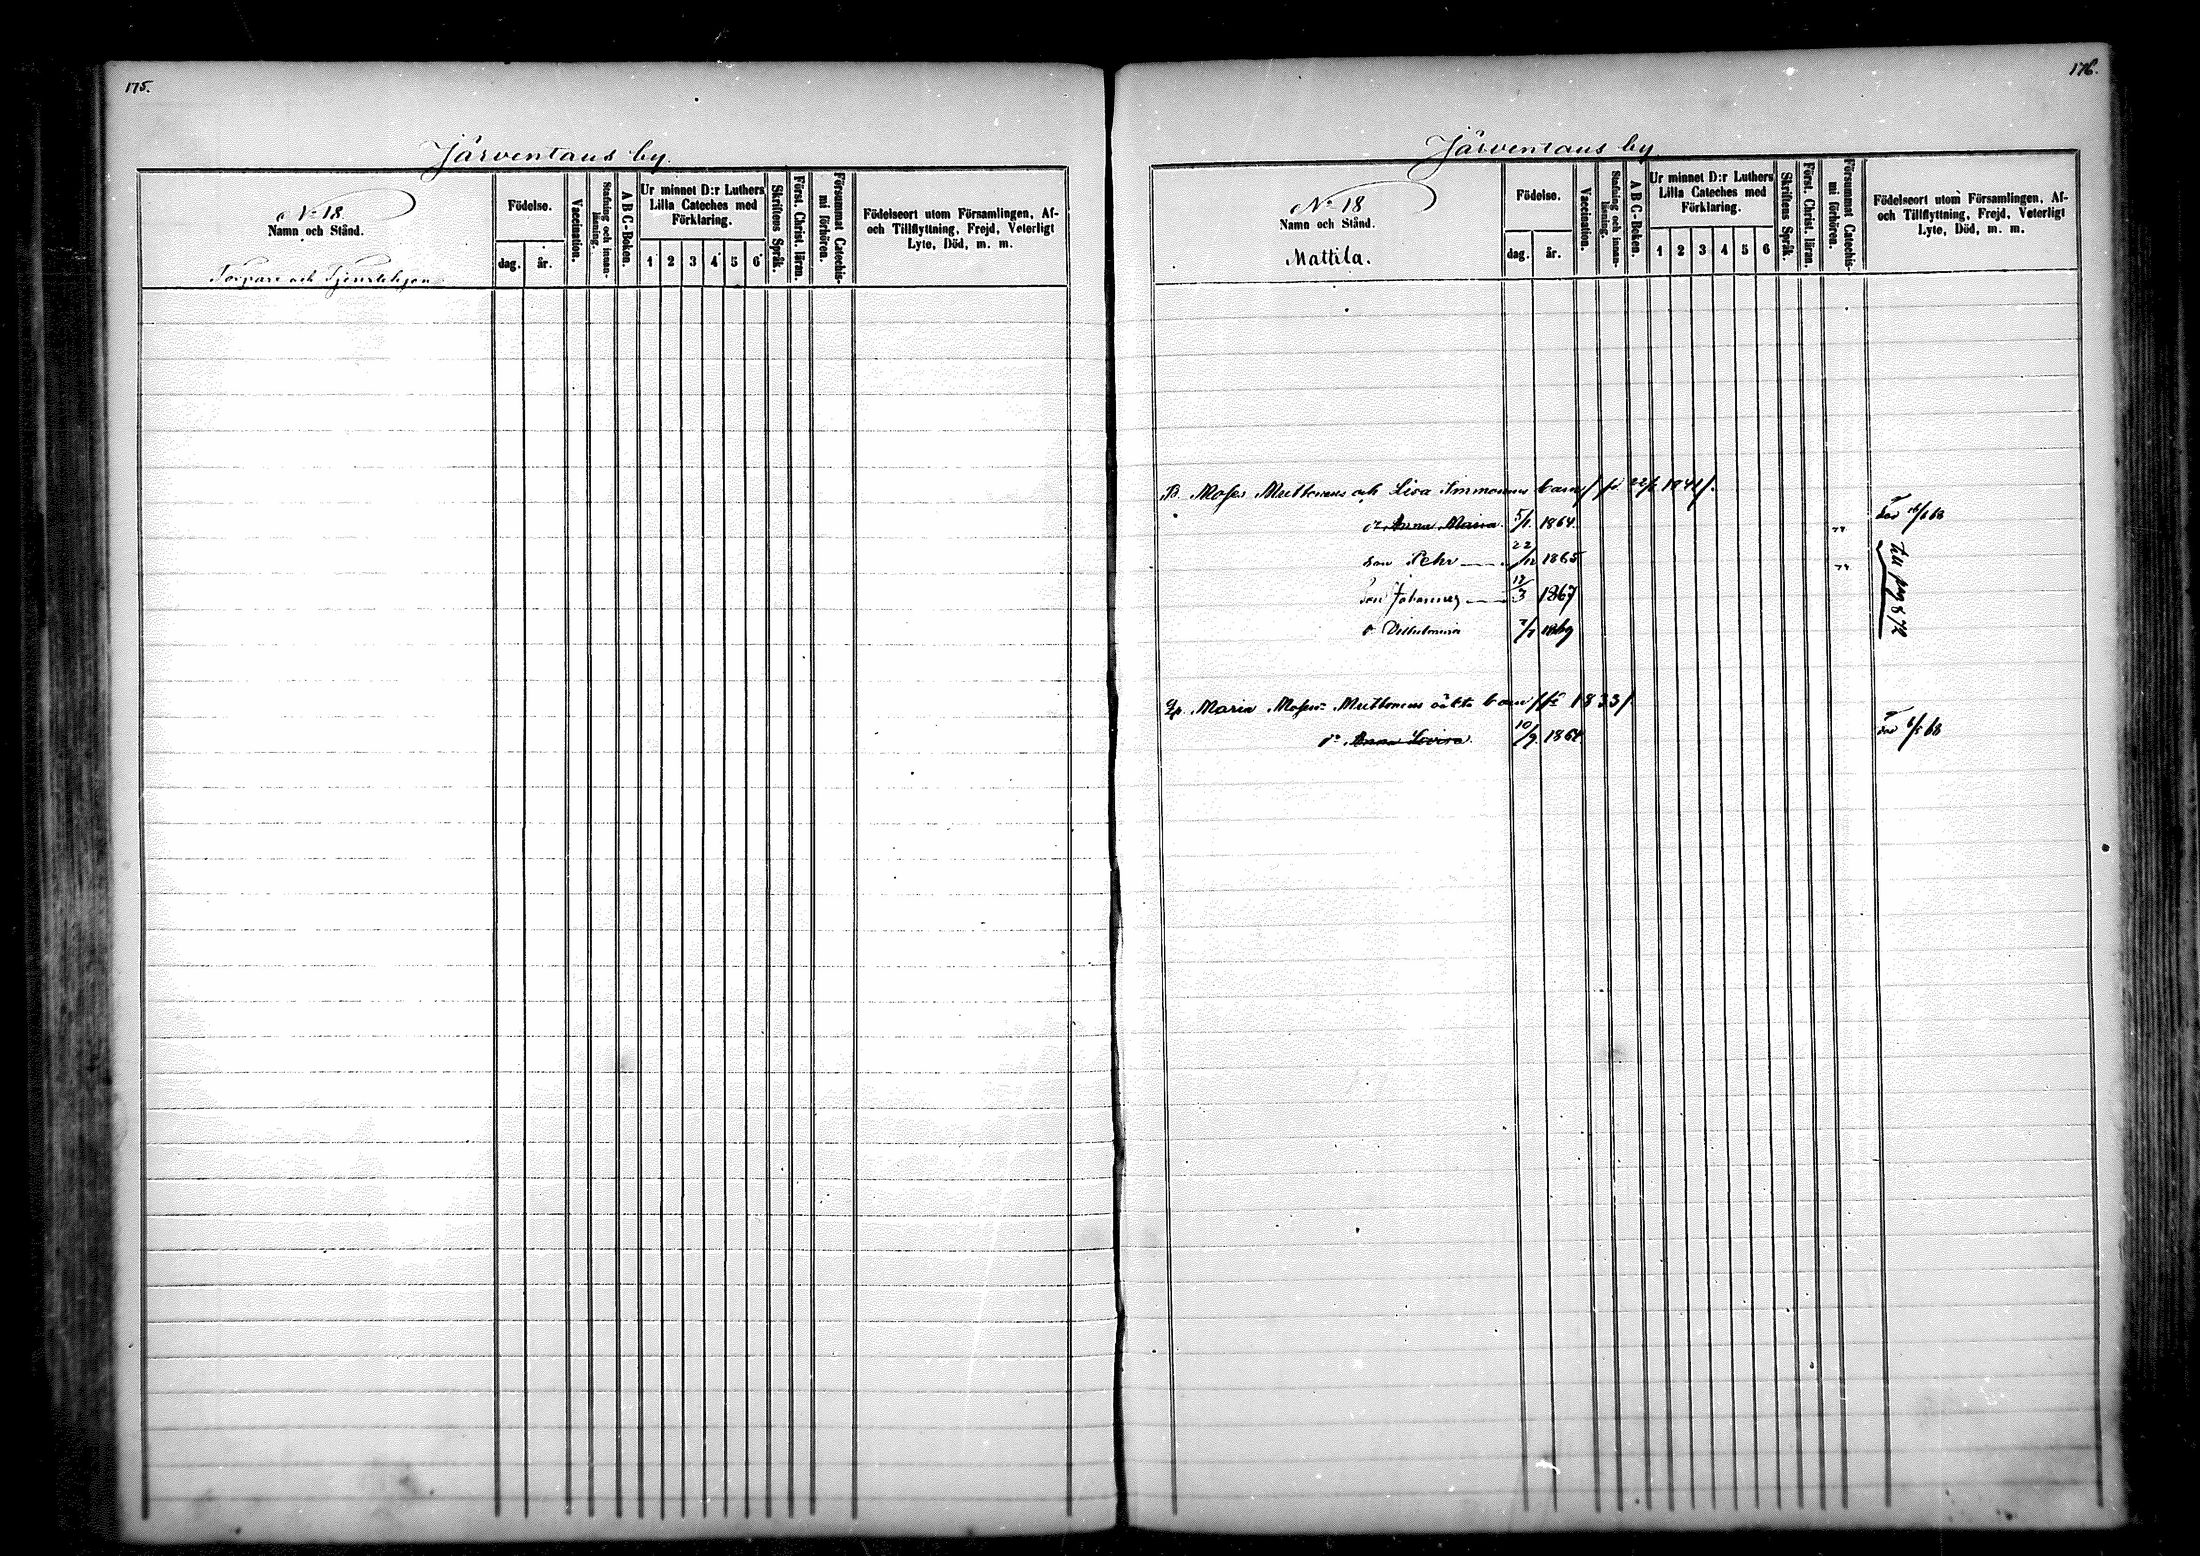 175.
Järventaus by.
No 18
Namn och Stånd.
Torpare och Tjenstehjon
Födelse.
dag. år.
Vaccination.
Stafning och innanläsning.
A B C-Boken.
Ur minnet D:r Luthers
Lilla Cateches med
Förklaring.
1 2 3 4 5 6
Skriftens Språk.
Först. Christ. läran.
Försummat Catechismi förhören.
Födelseort utom Församlingen, Af-
och Tillflyttning, Frejd, Veterligt
Lyte, Död, m. m.
176.
Järventaus by
No 18
Namn och Stånd.
Mattila.
Födelse.
dag. år.
Vaccination.
Stafning och innanläsning.
A B C-Boken.
Ur minnet D:r Luthers
Lilla Cateches med
Förklaring.
1 2 3 4 5 6
Skriftens Språk.
Först. Christ. läran.
Försummat Catechismi förhören.
Födelseort utom Församlingen, Af-
och Tillflyttning, Frejd, Veterligt
Lyte, Död, m. m.
B. Moses Muttonens och Lisa Immonens barn
dr Anna Maria 5/1. 1864. död 16/6 68
son Pehr 22/12 1865
son Johannes 12/3 1867
d. Vilhelmina 1869
till pag 872
Maria Mosesdr Muttonens oäkta barn /fö 1833/
dr Anna Lovisa. 10/9. 1864 död 6/5 68